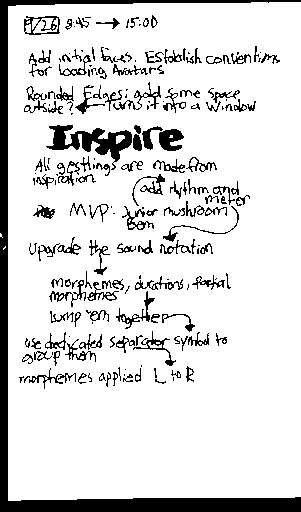 9/26 8:45 → 15:00
Add initial faces. Establish conventions
for loading Avatars
Rounded Edges: add some space
outside? ← Turns it into a window
Inspire
All gestlings are made from
inspiration
add rhythm and
meter
MVP: Junior mushroom
Bem
Upgrade the sound notation
morphemes, durations, partial
morphemes
lump 'em together
use dedicated separator symbol to
group them
morphemes applied L to R